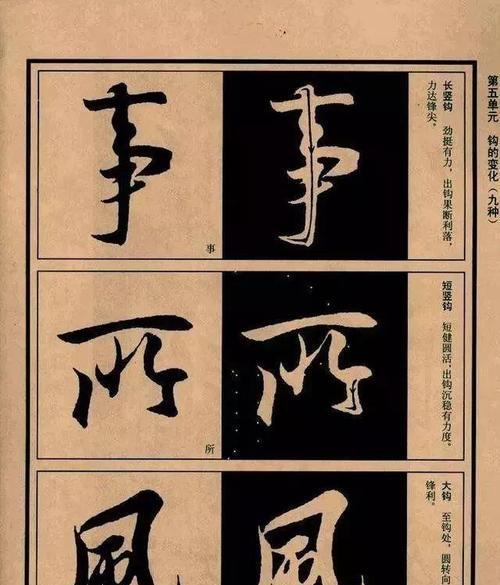 第五单元 钩的变化（九种）
长竖钩 劲挺有力，出钩果断利落，
力达锋尖。
事
事
事
短竖钩 短健圆活，出钩沉稳有力度。
所
所
所
大钩 至钩处，圆转向
锋利。
風
風